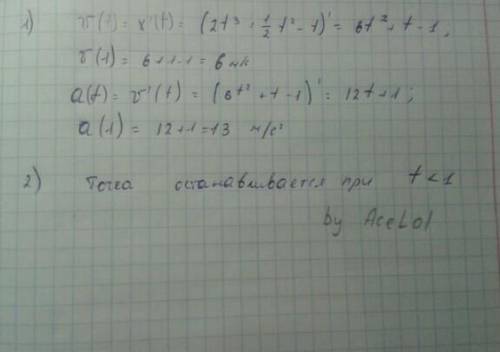 1) v(t) = x'(t) = (2t³ + 1/2 t² - 1)' = 6t² + t - 1;
v(1) = 6+1-1 = 6 м/с
a(t) = v'(t) = (6t² + t - 1)' = 12t + 1;
a(1) = 12+1=13 м/с²
2) Точка останавливается при t < 1
by AceLol